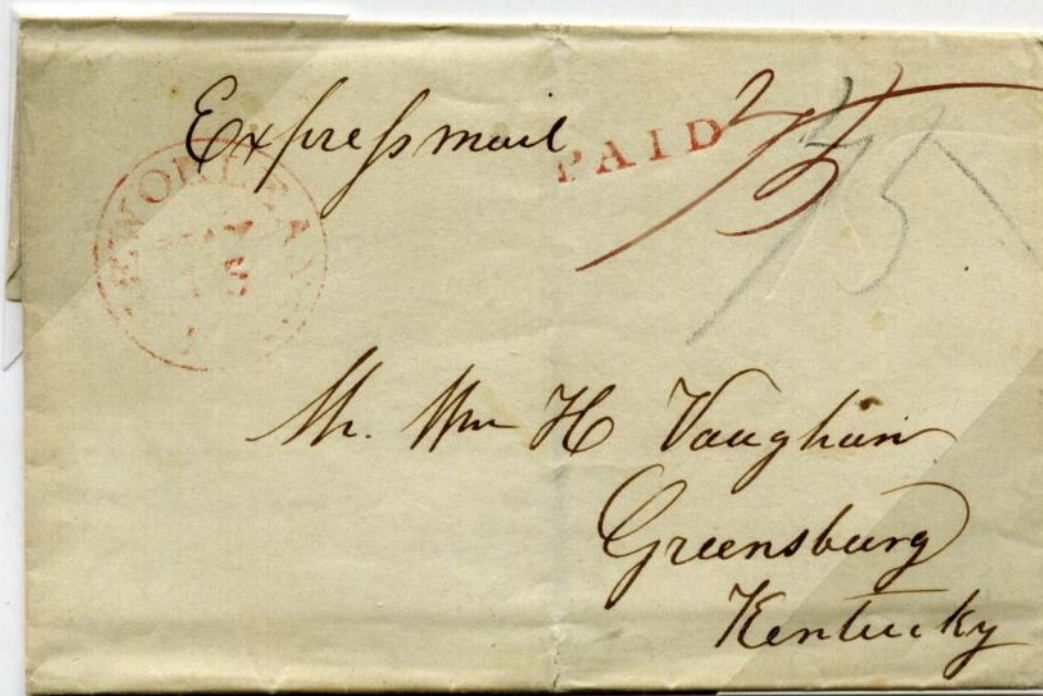 Express mail
PAID 75
75
NEW ORLEANS
MAY
15
Mr. Wm H Vaughan
Greensburg
Kentucky